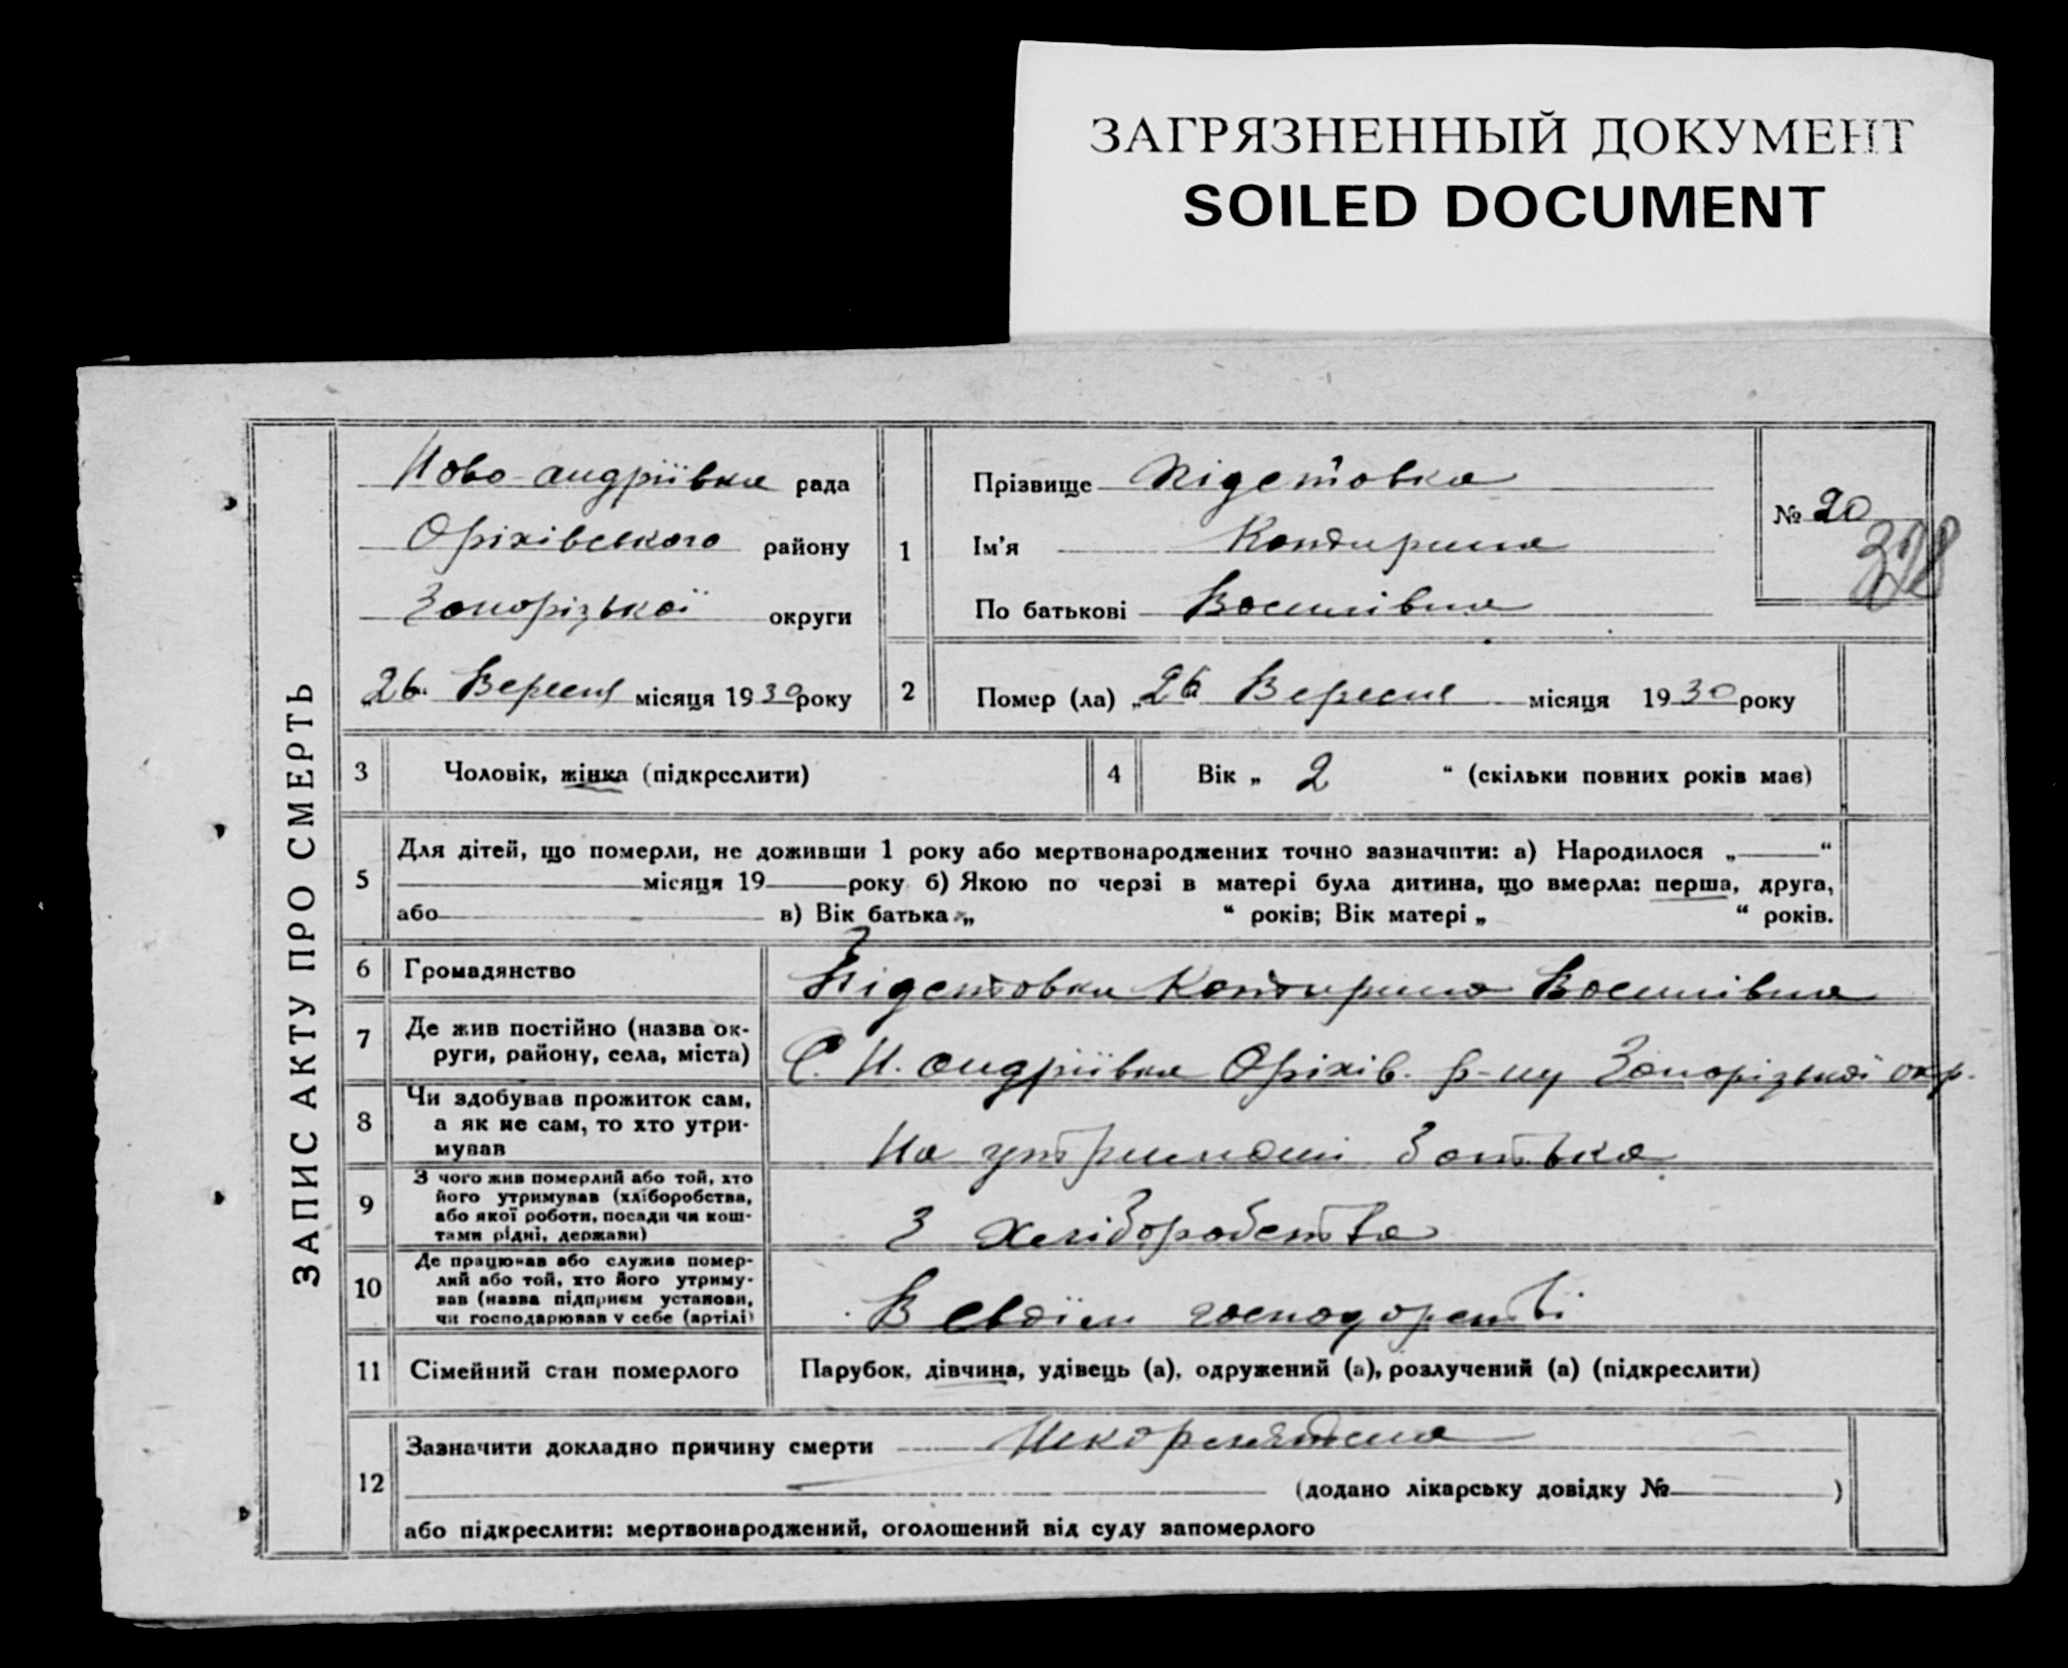 ЗАГРЯЗНЕННЫЙ ДОКУМЕНТ
SOILED DOCUMENT
ЗАПИС АКТУ ПРО СМЕРТЬ
Ново-андріївка рада
Оріхівського району
Запорізької округи
„26“ Вересня місяця 1930 року
1
Прізвище Підставка
Ім'я
По батькові Василівна
№ 20
2
Помер (ла) „26“ Вересня місяця 1930 року
3 Чоловік, жінка (підкреслити)
4 Вік „ 2 “ (скільки повних років має)
5 Для дітей, що померли, не доживши 1 року або мертвонароджених точно зазначити: а) Народилося „ “
місяця 19 року б) Якою по черзі в матері була дитина, що вмерла: перша, друга,
або в) Вік батька „ “ років; Вік матері „ “ років.
6 Громадянство
Василівна
7 Де жив постійно (назва ок-
руги, району, села, міста)
С. Н. андріївка Оріхів. р-ну Запорізької окр.
8 Чи здобував прожиток сам,
а як не сам, то хто утри-
мував
На утриманні батька
9 З чого жив померлий або той, хто
його утримував (хліборобства,
або якої роботи, посади чи кош-
тами рідні, держави)
З хліборобства
10 Де працював або служив помер-
лий або той, хто його утриму-
вав (назва підприєм установи,
чи господарював у себе (артілі)
В своїм господарстві
11 Сімейний стан померлого
Парубок, дівчина, удівець (а), одружений (а), розлучений (а) (підкреслити)
12 Зазначити докладно причину смерти
(додано лікарську довідку № )
або підкреслити: мертвонароджений, оголошений від суду запомерлого